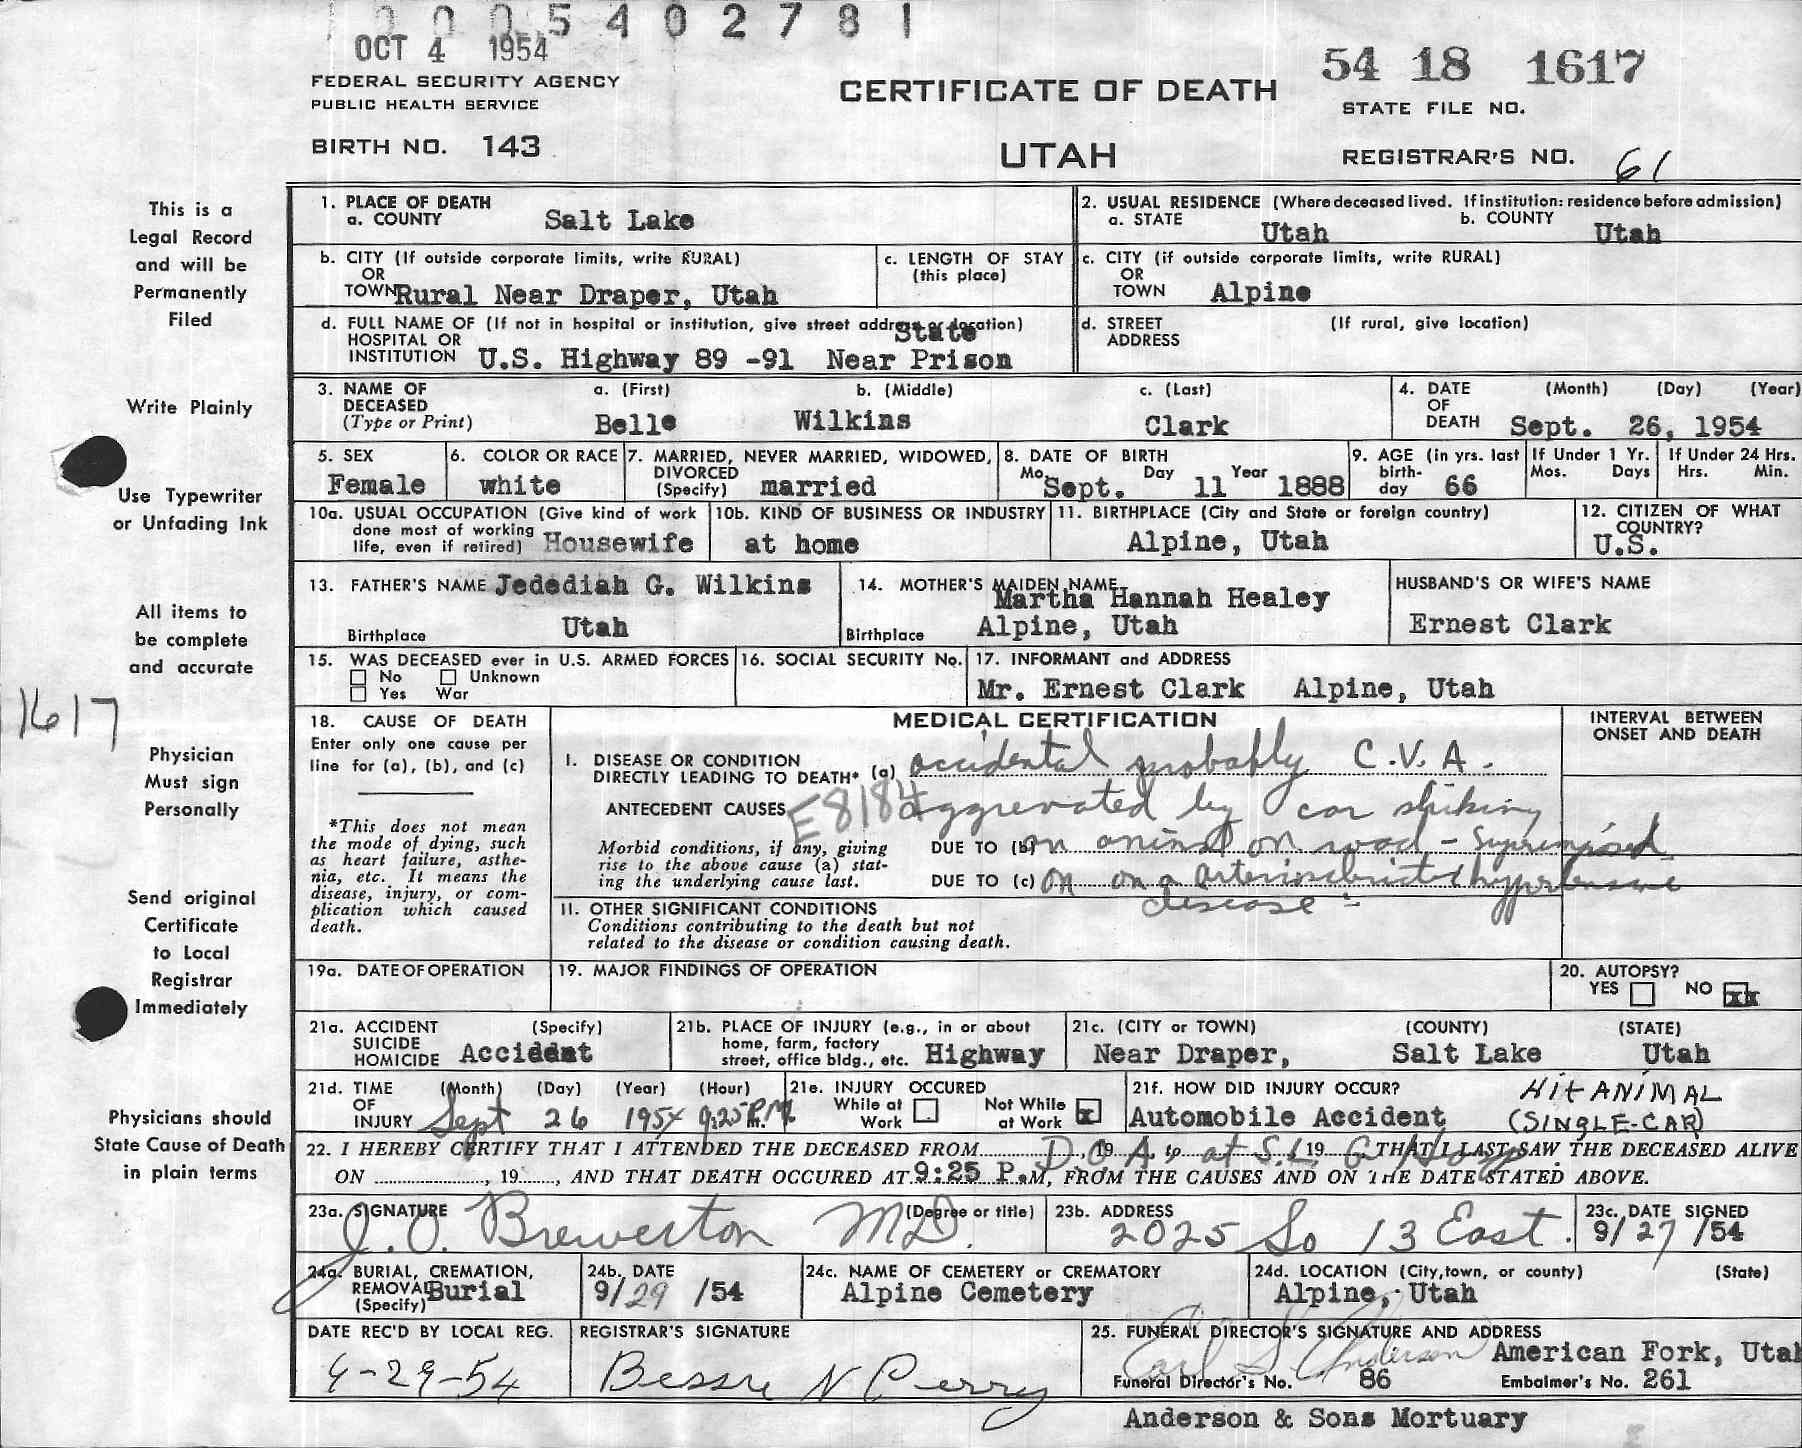 0 0 0 5 4 0 2 7 8 1
OCT 4 1954
54 18 1617
FEDERAL SECURITY AGENCY
PUBLIC HEALTH SERVICE
CERTIFICATE OF DEATH
STATE FILE NO.
BIRTH NO. 143
UTAH
REGISTRAR'S NO. 61
This is a
Legal Record
and will be
Permanently
Filed
Write Plainly
Use Typewriter
or Unfading Ink
All items to
be complete
and accurate
1617
Physician
Must sign
Personally
Send original
Certificate
to Local
Registrar
Immediately
Physicians should
State Cause of Death
in plain terms
1. PLACE OF DEATH
a. COUNTY Salt Lake
2. USUAL RESIDENCE (Where deceased lived. If institution: residence before admission)
a. STATE Utah b. COUNTY Utah
b. CITY (If outside corporate limits, write RURAL)
OR
TOWN Rural Near Draper, Utah
c. LENGTH OF STAY
(this place)
c. CITY (if outside corporate limits, write RURAL)
OR
TOWN Alpine
d. FULL NAME OF (If not in hospital or institution, give street address or location)
HOSPITAL OR State
INSTITUTION U.S. Highway 89 -91 Near Prison
d. STREET (If rural, give location)
ADDRESS
3. NAME OF a. (First) b. (Middle) c. (Last)
DECEASED
(Type or Print) Belle Wilkins Clark
4. DATE (Month) (Day) (Year)
OF
DEATH Sept. 26, 1954
5. SEX
Female
6. COLOR OR RACE
white
7. MARRIED, NEVER MARRIED, WIDOWED,
DIVORCED
(Specify) married
8. DATE OF BIRTH
Mo. Sept. Day 11 Year 1888
9. AGE (in yrs. last
birth-
day 66
If Under 1 Yr.
Mos. Days
If Under 24 Hrs.
Hrs. Min.
10a. USUAL OCCUPATION (Give kind of work
done most of working
life, even if retired) Housewife
10b. KIND OF BUSINESS OR INDUSTRY
at home
11. BIRTHPLACE (City and State or foreign country)
Alpine, Utah
12. CITIZEN OF WHAT
COUNTRY?
U.S.
13. FATHER'S NAME Jedediah G. Wilkins
Birthplace Utah
14. MOTHER'S MAIDEN NAME
Martha Hannah Healey
Birthplace Alpine, Utah
HUSBAND'S OR WIFE'S NAME
Ernest Clark
15. WAS DECEASED ever in U.S. ARMED FORCES
No Unknown
Yes War
16. SOCIAL SECURITY No.
17. INFORMANT and ADDRESS
Mr. Ernest Clark Alpine, Utah
18. CAUSE OF DEATH
Enter only one cause per
line for (a), (b), and (c)
*This does not mean
the mode of dying, such
as heart failure, asthe-
nia, etc. It means the
disease, injury, or com-
plication which caused
death.
MEDICAL CERTIFICATION
INTERVAL BETWEEN
ONSET AND DEATH
I. DISEASE OR CONDITION
DIRECTLY LEADING TO DEATH* (a) accidental probably C.V.A.
ANTECEDENT CAUSES E8184 aggrevated by car striking
Morbid conditions, if any, giving
rise to the above cause (a) stat-
ing the underlying cause last.
DUE TO (b) an animal on road - Superimposed
DUE TO (c) on on a arteriosclerioted hypertensive
disease -
II. OTHER SIGNIFICANT CONDITIONS
Conditions contributing to the death but not
related to the disease or condition causing death.
19a. DATE OF OPERATION
19. MAJOR FINDINGS OF OPERATION
20. AUTOPSY?
YES NO xx
21a. ACCIDENT (Specify)
SUICIDE
HOMICIDE Accident
21b. PLACE OF INJURY (e.g., in or about
home, farm, factory
street, office bldg., etc. Highway
21c. (CITY or TOWN) (COUNTY) (STATE)
Near Draper, Salt Lake Utah
21d. TIME (Month) (Day) (Year) (Hour)
OF
INJURY Sept 26 1954 9:25 P.M.
21e. INJURY OCCURED
While at Work Not While at Work x
21f. HOW DID INJURY OCCUR? HIT ANIMAL
Automobile Accident (SINGLE-CAR)
22. I HEREBY CERTIFY THAT I ATTENDED THE DECEASED FROM D.O.A., 19 to at S.L. 19 G. Hosp THAT I LAST SAW THE DECEASED ALIVE
ON , 19 , AND THAT DEATH OCCURED AT 9:25 P.M, FROM THE CAUSES AND ON THE DATE STATED ABOVE.
23a. SIGNATURE (Degree or title)
J. O. Brewerton MD.
23b. ADDRESS
2025 So 13 East.
23c. DATE SIGNED
9/27/54
24a. BURIAL, CREMATION,
REMOVAL Burial
(Specify)
24b. DATE
9/29/54
24c. NAME OF CEMETERY or CREMATORY
Alpine Cemetery
24d. LOCATION (City, town, or county) (State)
Alpine, Utah
DATE REC'D BY LOCAL REG.
9-29-54
REGISTRAR'S SIGNATURE
Bessie N Perry
25. FUNERAL DIRECTOR'S SIGNATURE AND ADDRESS
Earl S. Anderson American Fork, Utah
Funeral Director's No. 86 Embalmer's No. 261
Anderson & Sons Mortuary